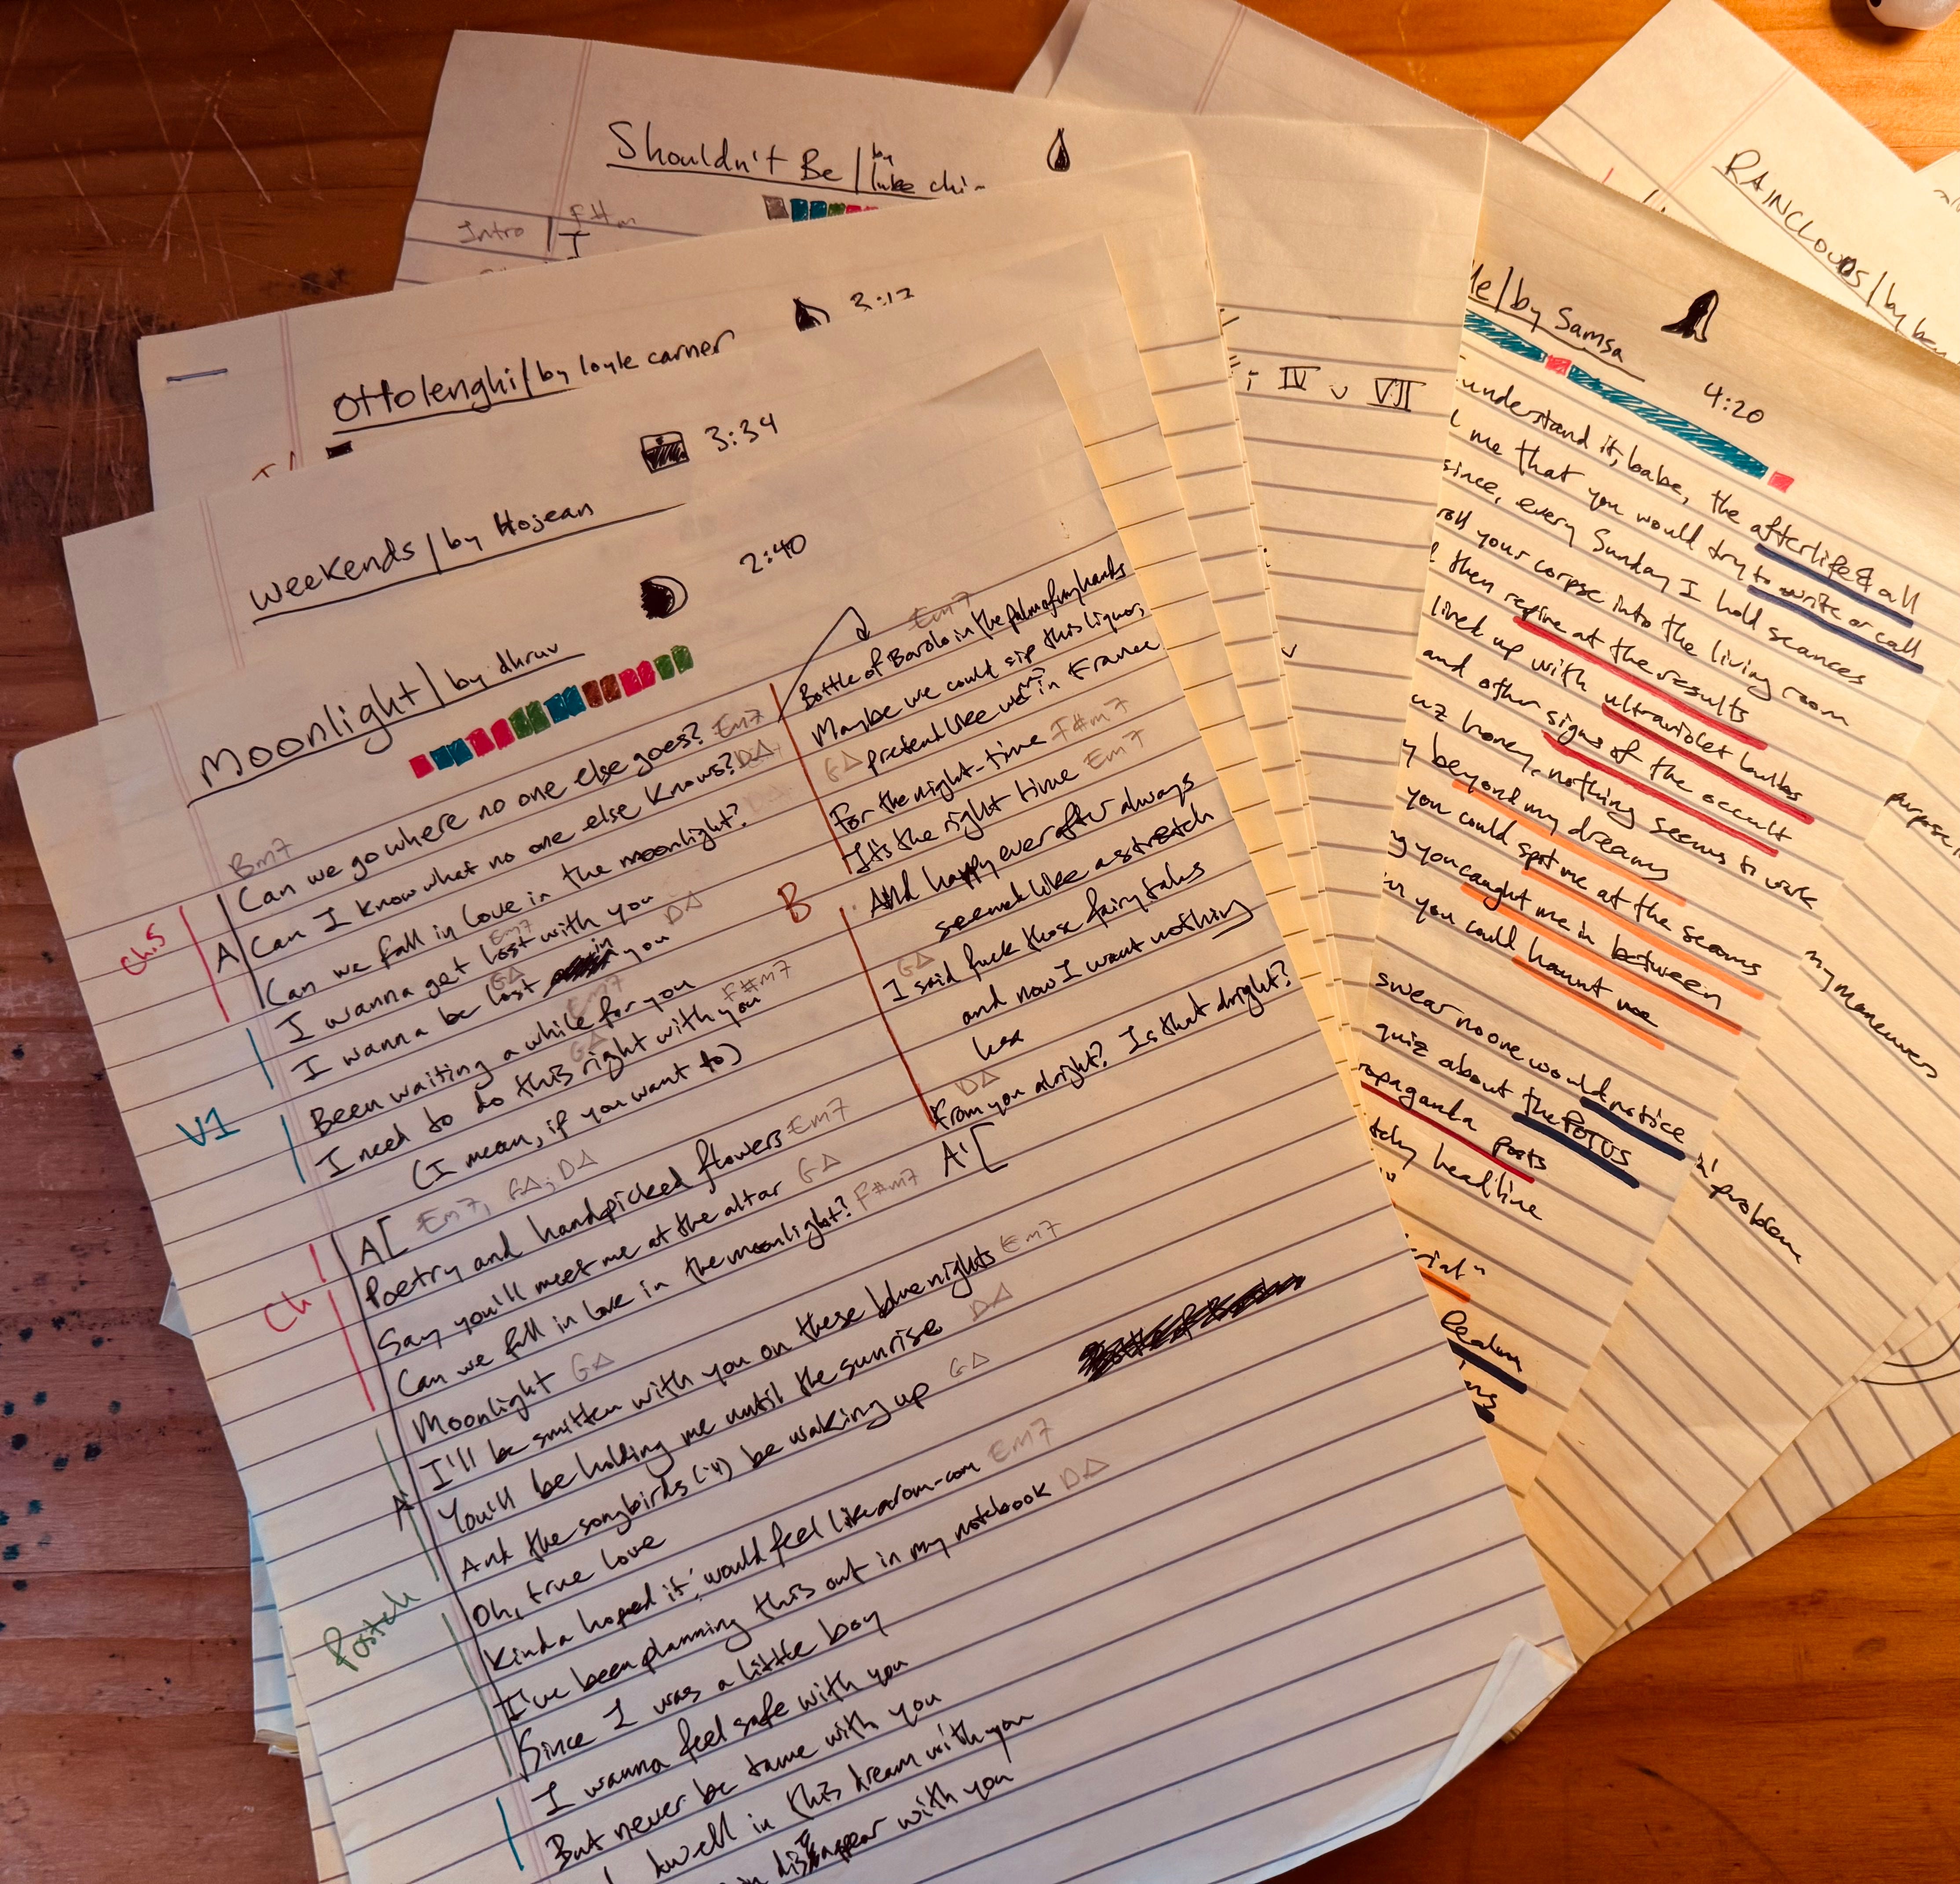 Shouldn't Be / by luke chi
Intro / F#m
I
Ottolenghi / by loyle carner
3:13
Weekends / by Hojean
3:34
Moonlight / by dhruv
2:40
Bm7
Can we go where no one else goes? Em7
Can I know what no one else knows? DΔ
Can we fall in love in the moonlight? DΔ
Ch.5
A
I wanna get lost with you
Em7 DΔ
I wanna be lost in you
GΔ Em7
Been waiting a while for you
GΔ F#m7
I need to do this right with you
(I mean, if you want to)
V1
A[ Em7, GΔ; DΔ
Poetry and handpicked flowers Em7
Say you'll meet me at the altar GΔ
Can we fall in love in the moonlight? F#m7
Ch
Moonlight GΔ
I'll be smitten with you on these blue nights Em7
You'll be holding me until the sunrise DΔ
And the songbirds (-'ll) be waking up GΔ
A'
Oh, true love
Kinda hoped it'would feel like a rom-com Em7
I've been planning this out in my notebook DΔ
Since I was a little boy
Postch
I wanna feel safe with you
But never be tame with you
dwell in this dream with you
in disappear with you
Em7
Bottle of Barolo in the palm of my hands
Maybe we could sip this liquor,
GΔ pretend like we in France
For the night-time F#m7
It's the right time Em7
B
And happy ever after always
seemed like a stretch
I said fuck those fairytales
GΔ
and now I want nothing
less
DΔ
From you alright? Is that alright?
A'[
; IV v VII
v
Me / by Samsa
4:20
understand it, babe, the afterlife & all
me that you would try to write or call
since, every Sunday I hold seances
roll your corpse into the living room
then repine at the results
lined up with ultraviolet bulbs
and other signs of the occult
uz honey, nothing seems to work
y beyond my dreams
you could spot me at the seams
g you caught me in between
you could haunt me
swear no one would notice
quiz about the POTUS
ropaganda posts
tchy headline
"
rial"
Realm
RAINCLOUDS / by ben
purpose i
my maneuvers
n' problem